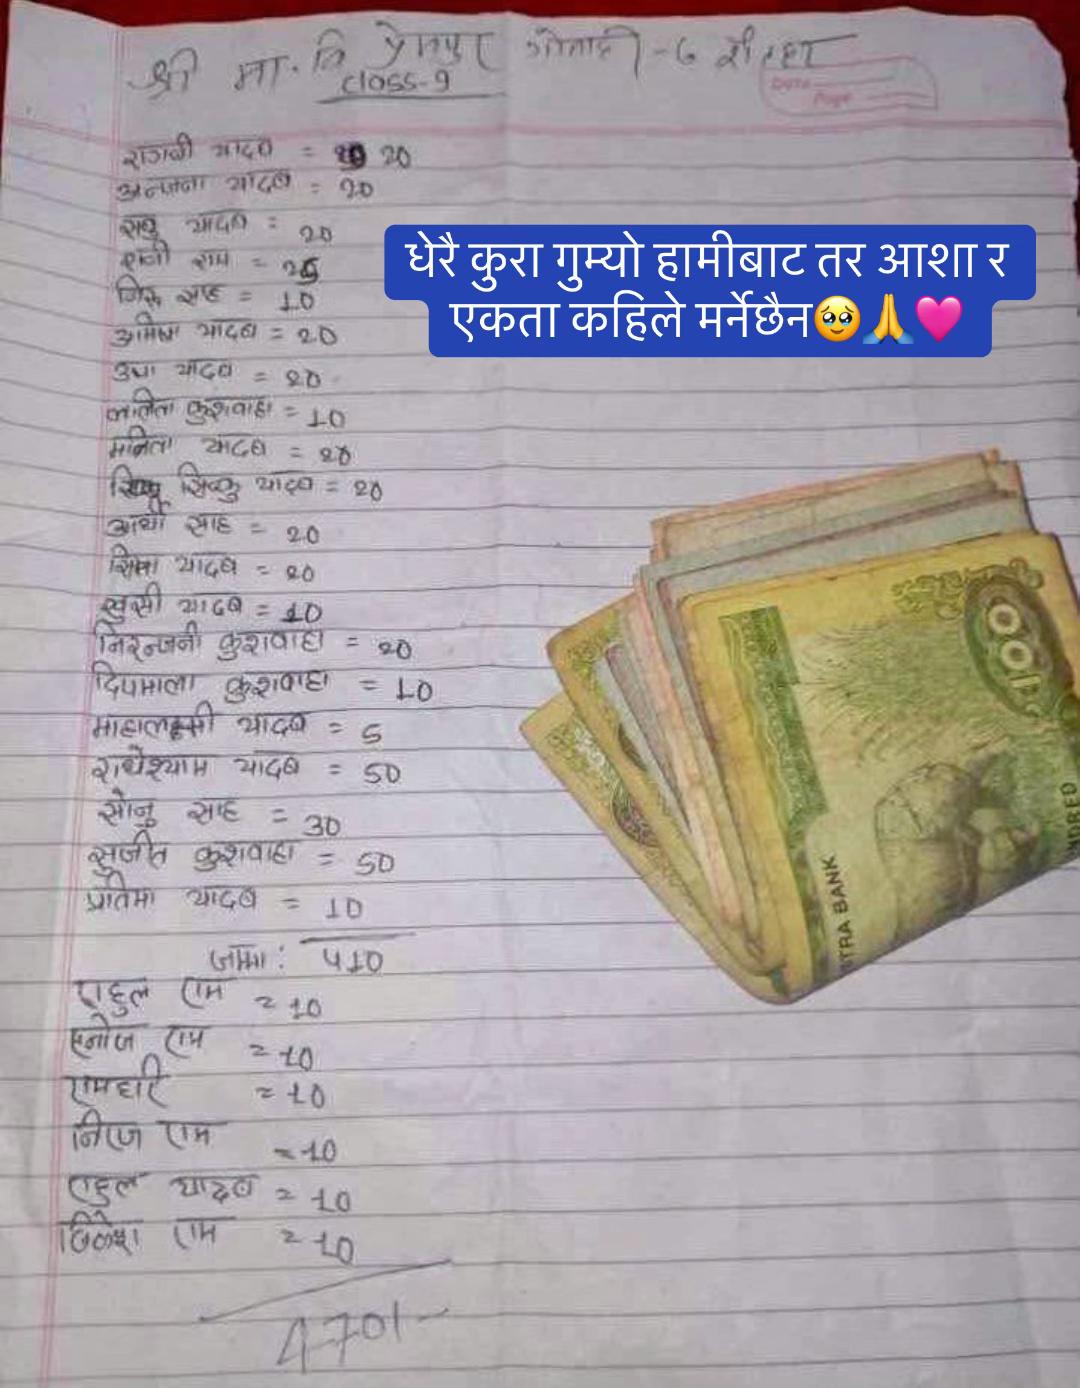 श्री मा. वि प्रेमपुर गोनाही-6 रौतहट
Class-9
Date
Page
रागनी यादव = 20
अन्जना यादव = 20
सबु यादव = 20
रानी राम = 25
निरु साह = 10
अमिषा यादव = 20
उषा यादव = 20
ललिता कुशवाहा = 10
मनिता यादव = 20
सिन्कु यादव = 20
आर्थी साह = 20
सिमा यादव = 20
खुसी यादव = 10
निरन्जनी कुशवाहा = 20
दिपमाला कुशवाहा = 10
माहालक्ष्मी यादव = 5
राधेश्याम यादव = 50
सोनु साह = 30
सुजीत कुशवाहा = 50
प्रतिमा यादव = 10
जम्मा: 410
राहुल राम = 10
मनोज राम = 10
रामहारि = 10
निरज राम = 10
राहुल यादव = 10
राम = 10
470/-
धेरै कुरा गुम्यो हामीबाट तर आशा र
एकता कहिले मर्नेछैन🥹🙏🩷
100
TRA BANK
NDRED